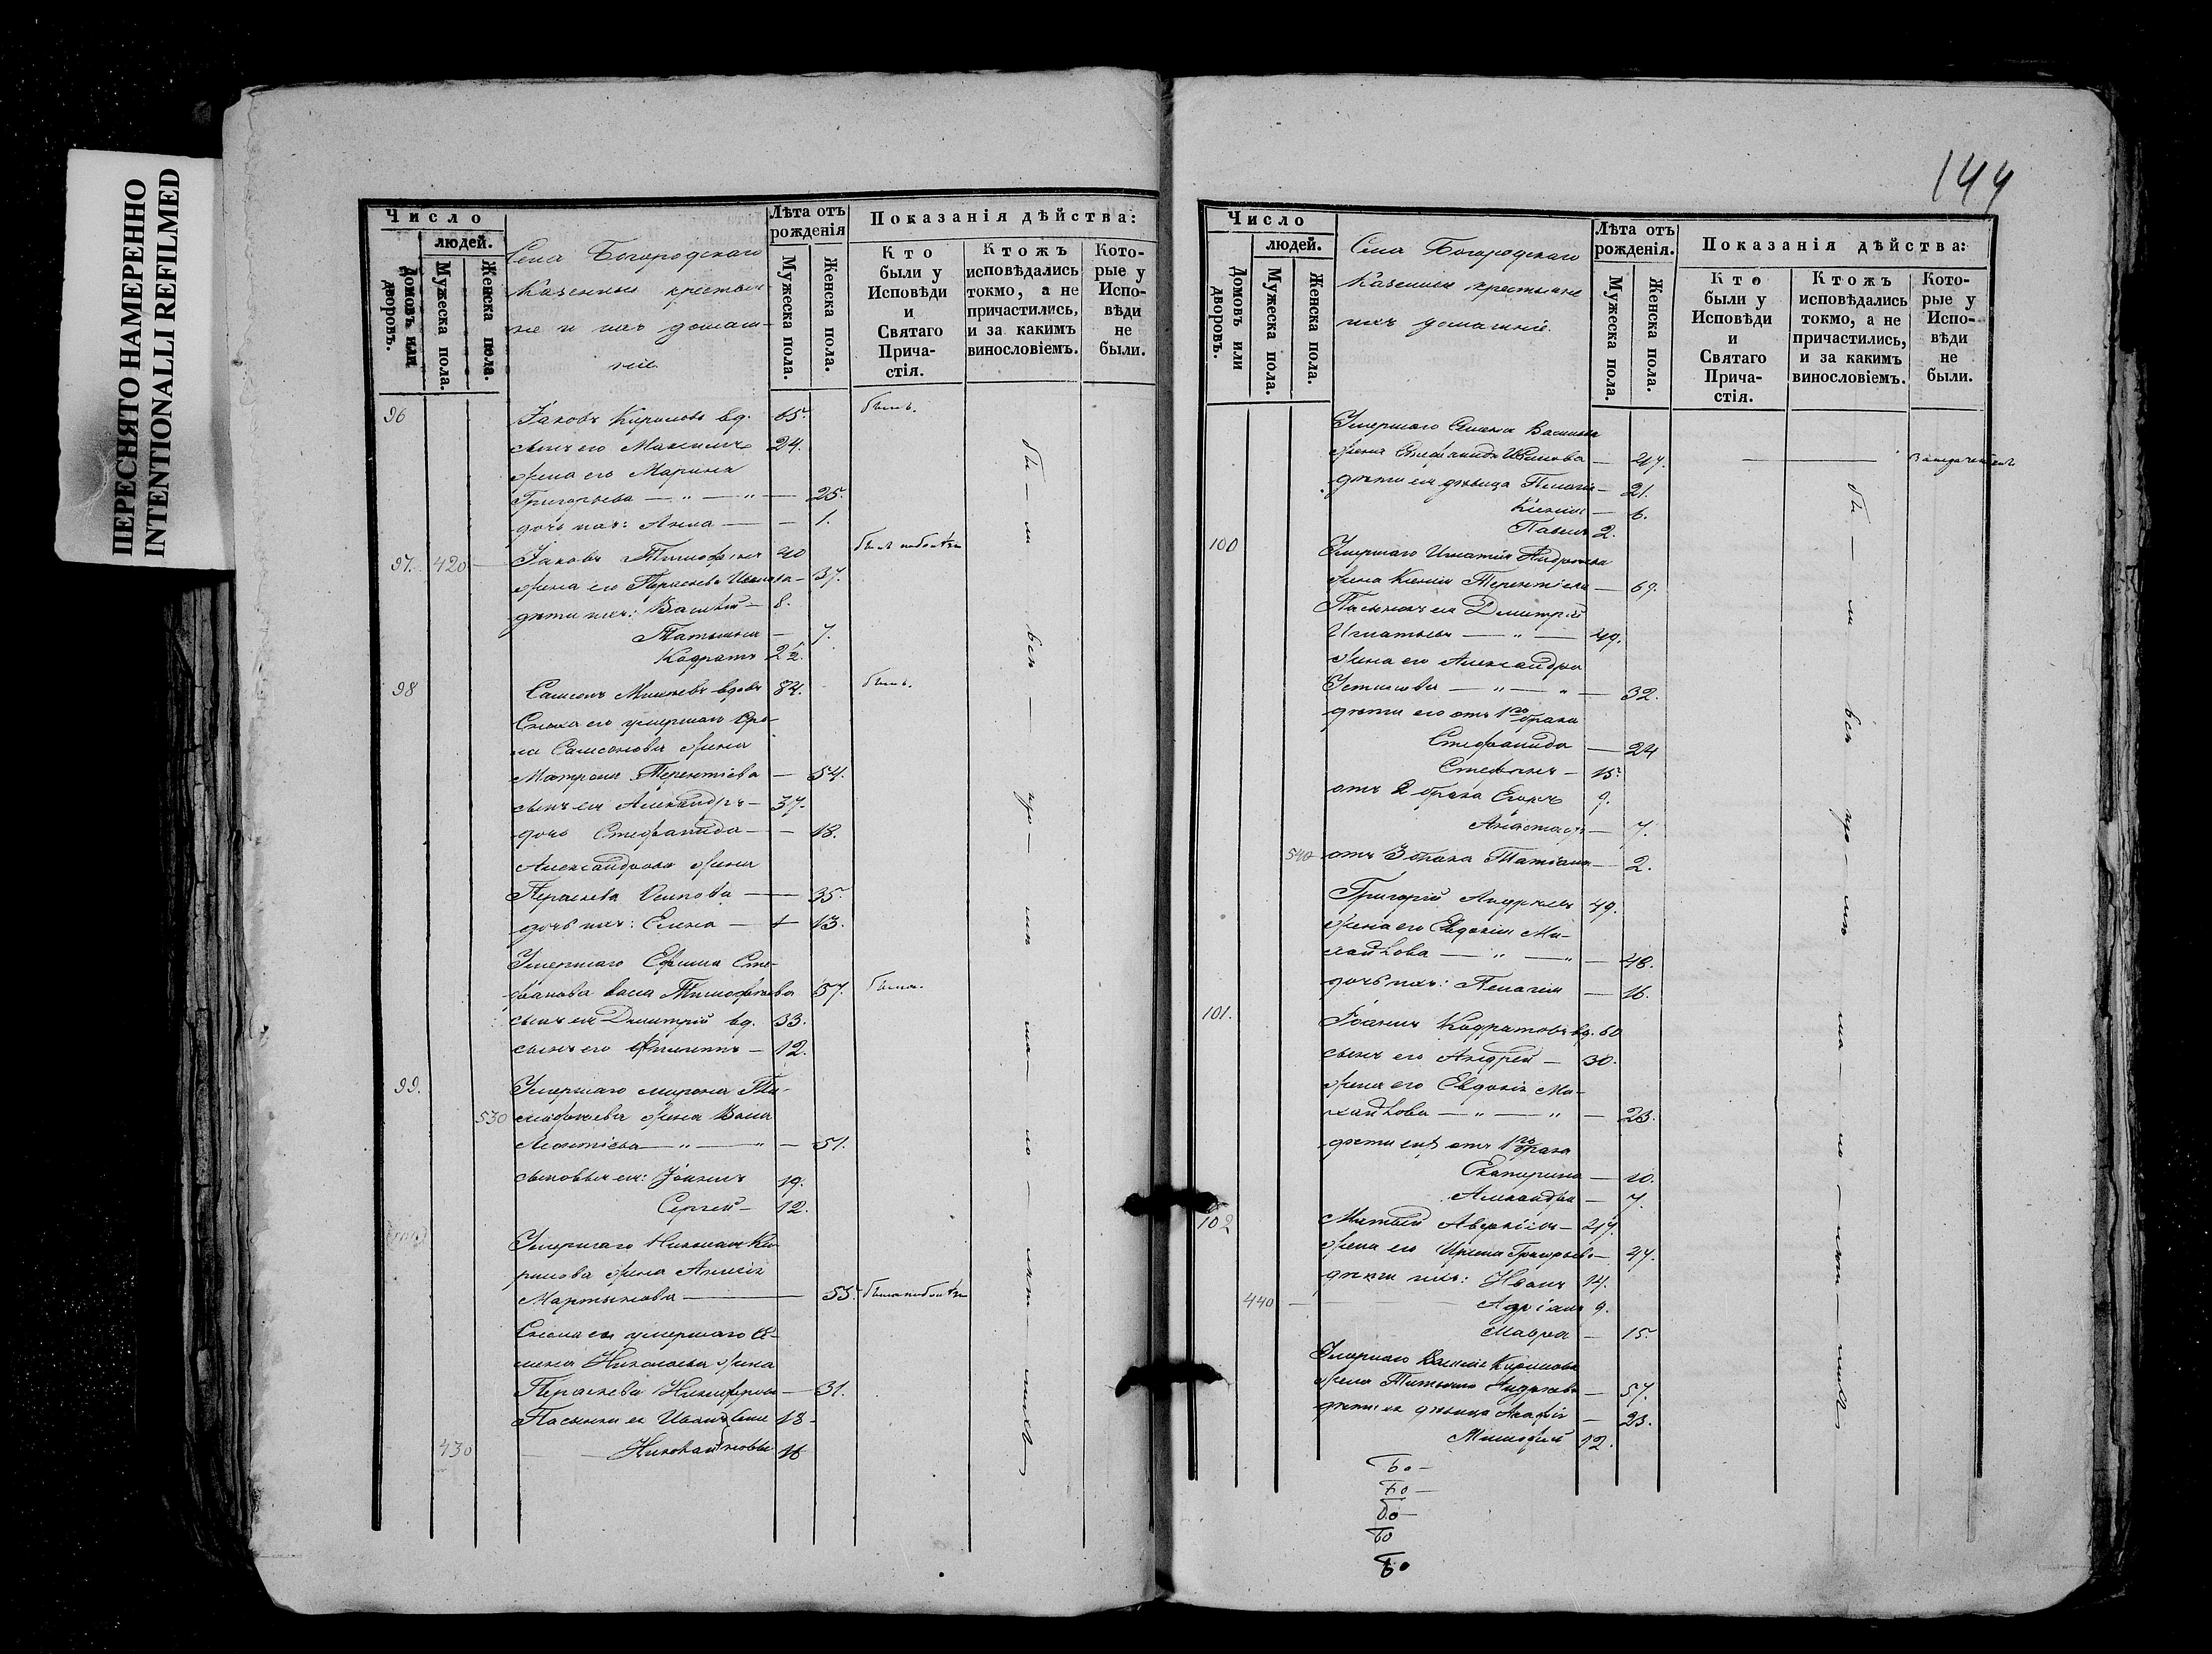 ПЕРЕСНЯТО НАМЕРЕННО
INTENTIONALLI REFILMED
144
Число
людей.
Домовъ или дворовъ.
Мужеска пола.
Женска пола.
Села Богородскаго
Казенные крестья-
не и ихъ домаш-
ніе.
Лѣта отъ рожденія
Мужеска пола.
Женска пола.
Показанія дѣйства:
Кто были у Исповѣди и Святаго Прича-стія.
Ктожъ исповѣдались токмо, а не причастились, и за какимъ винословіемъ.
Кото-рые у Испо-вѣди не были.
96 Іаковъ Кириловъ вд. 65. былъ.
сынъ его Максимъ 24.
жена его Марина
Григорьева — „ — „ — 25.
дочь ихъ: Анна — — 1.
97. 420 Іаковъ Тимофеевъ 40
жена его Параскева Иванова — 37.
дѣти ихъ: Василій — 8.
Татьяна — 7.
Кодратъ 2½.
98 Самсонъ вдовъ 84. былъ.
Сноха его умершаго
Самсонова жена
Матрона Терентіева — 54.
сынъ ея Александръ — 37.
дочь Стефанида — — 18.
Александрова жена
Параскева Осипова — 35.
дочь ихъ: Елена — 13.
Умершаго Ефима Сте-
фанова жена Тимофеева 57. была.
сынъ ея Дмитрій вд. 33.
сынъ его Филиппъ — 12.
99. Умершаго Мирона Ти-
530 мофеева жена
Леонтіева — „ — „ — 51.
сыновья ея: Іоаннъ 19.
Сергей — 12.
Умершаго Николая Ки-
рилова жена
Мартынова — 55.
Сноха ея умершаго
Николаева жена
Параскева Никифорова — 31.
Пасынки ея Иванъ 18 —
430 Николай 16
бы — ли всѣ — про — ма — по
Число
людей.
Домовъ или дворовъ.
Мужеска пола.
Женска пола.
Села Богородскаго
Казенные крестьяне
ихъ домашніе.
Лѣта отъ рожденія.
Мужеска пола.
Женска пола.
Показанія дѣйства:
Кто были у Исповѣди и Святаго Прича-стія.
Ктожъ исповѣдались токмо, а не причастились, и за какимъ винословіемъ.
Кото-рые у Испо-вѣди не были.
Умершаго
жена Стефанида Иванова — 47.
дѣти ея дѣвица Пелагія — 21.
Ксенія — 6.
Павелъ 2.
100 Умершаго Игнатія Андреева
жена Ксенія Терентіева — 69.
Пасынокъ ея Димитрій
Игнатьевъ — „ — 49.
жена его Александра
Устинова — „ — „ — 32.
дѣти его отъ 1го брака
Стефанида — 24
Стефанъ — 15.
отъ 2 брака Егоръ 9.
Анастасія — 7.
540 отъ 3 брака Татіана — 2.
Григорій Андреевъ 49.
жена его Евдокія Ми-
хайлова — „ — „ — 48.
дочь ихъ: Пелагія — 16.
101. Іоаннъ Кодратовъ вд. 60
сынъ его Андрей — 30.
жена его Евдокія Ми-
хайлова — „ — „ — 23.
дѣти отъ 1го брака
Екатерина — 10.
Александра — 7.
102 Матвей Аверкіевъ — 47.
жена его Ирина Григорьева — 47.
дѣти ихъ: Иванъ 14.
440 — Адріанъ 9.
Мавра — 15.
Умершаго Василія Кирилова
жена Татьяна Андреева — 57.
дѣти ея дѣвица Агафія — 23.
Тимофей 12.
бы — ли всѣ про — ма — по
Бо —
Бо —
Бо —
Бо
Бо